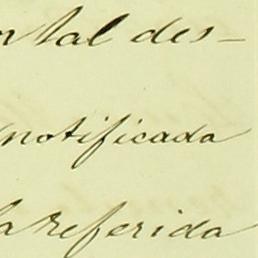 tal des-
notificada
la referida